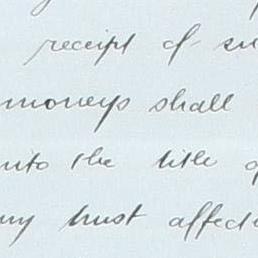 receipt of su
moneys shall
nto the title o
ny trust affecti